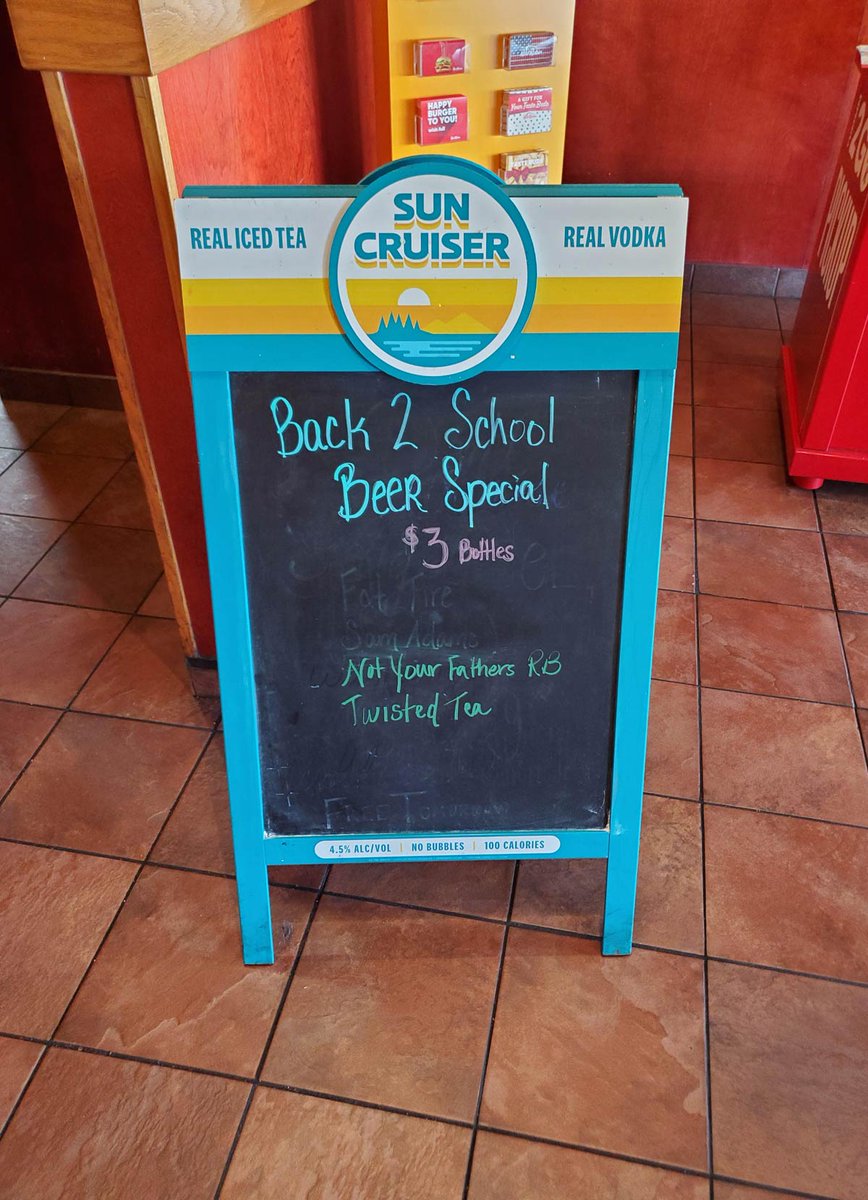 HAPPY
BURGER
TO YOU!
A GIFT FOR
SUN
CRUISER
REAL ICED TEA
REAL VODKA
Back 2 School
Beer Special
$3 Bottles
Fat Tire
Sam Adams
Not Your Fathers RB
Twisted Tea
FREE
4.5% ALC/VOL | NO BUBBLES | 100 CALORIES